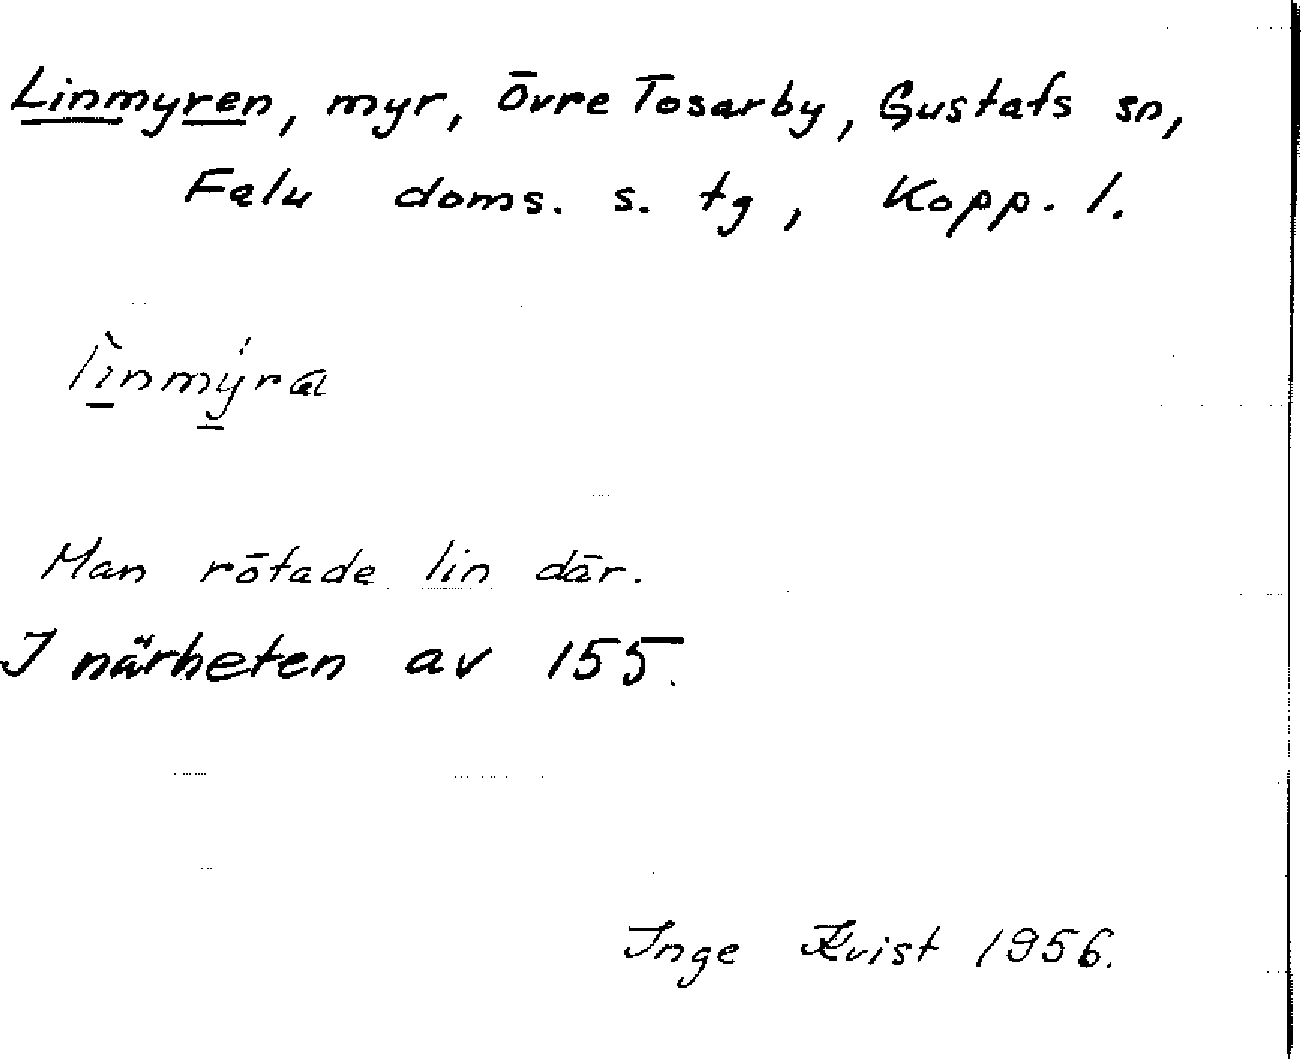 Linmyren, myr, Övre Tosarby, Gustafs sn,
Falu doms. s. tg, Kopp. l.
Man rötade lin där.
I närheten av 155.
Inge Kvist 1956.